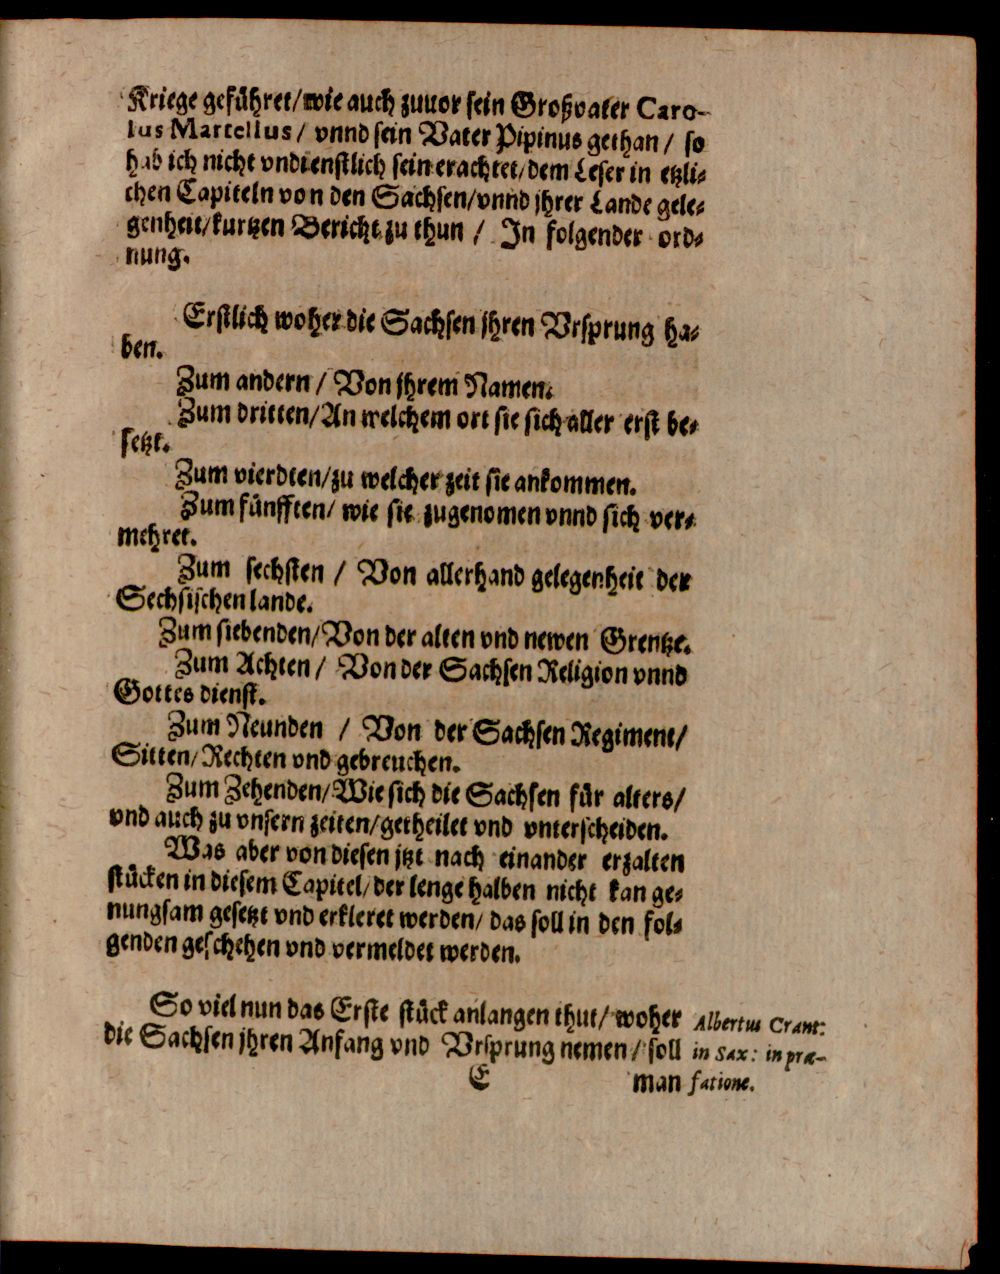 Kriege geführet/wie auch zuuor sein Großvater Caro-
lus Martellus/ vnnd sein Vater Pipinus gethan/ so
hab ich nicht vndienstlich sein erachtet/dem Leser in etzli-
chen Capiteln von den Sachsen/vnnd jhrer Lande gele-
genheit/kurtzen Bericht zu thun / In folgender ord-
nung.
Erstlich woher die Sachsen jhren Vrsprung ha-
ben.
Zum andern / Von jhrem Namen.
Zum dritten/An welchem ort sie sich aller erst be-
setzt.
Zum vierdten/zu welcher zeit sie ankommen.
Zum fünfften/ wie sie zugenomen vnnd sich ver-
mehret.
Zum sechsten / Von allerhand gelegenheit der
Sechsischen lande.
Zum siebenden/Von der alten vnd newen Grentze.
Zum Achten / Von der Sachsen Religion vnnd
Gottes dienst.
Zum Neunden / Von der Sachsen Regiment/
Sitten/Rechten vnd gebreuchen.
Zum Zehenden/Wie sich die Sachsen für alters/
vnd auch zu vnsern zeiten/getheilet vnd vnterscheiden.
Was aber von diesen jtzt nach einander erzalten
stücken in diesem Capitel/der lenge halben nicht kan ge-
nungsam gesetzt vnd erkleret werden/ das soll in den fol-
genden geschehen vnd vermeldet werden.
So viel nun das Erste stück anlangen thut/ woher
die Sachsen jhren Anfang vnd Vrsprung nemen/ soll
E man
Albertus Crant:
in Sax: in præ-
fatione.